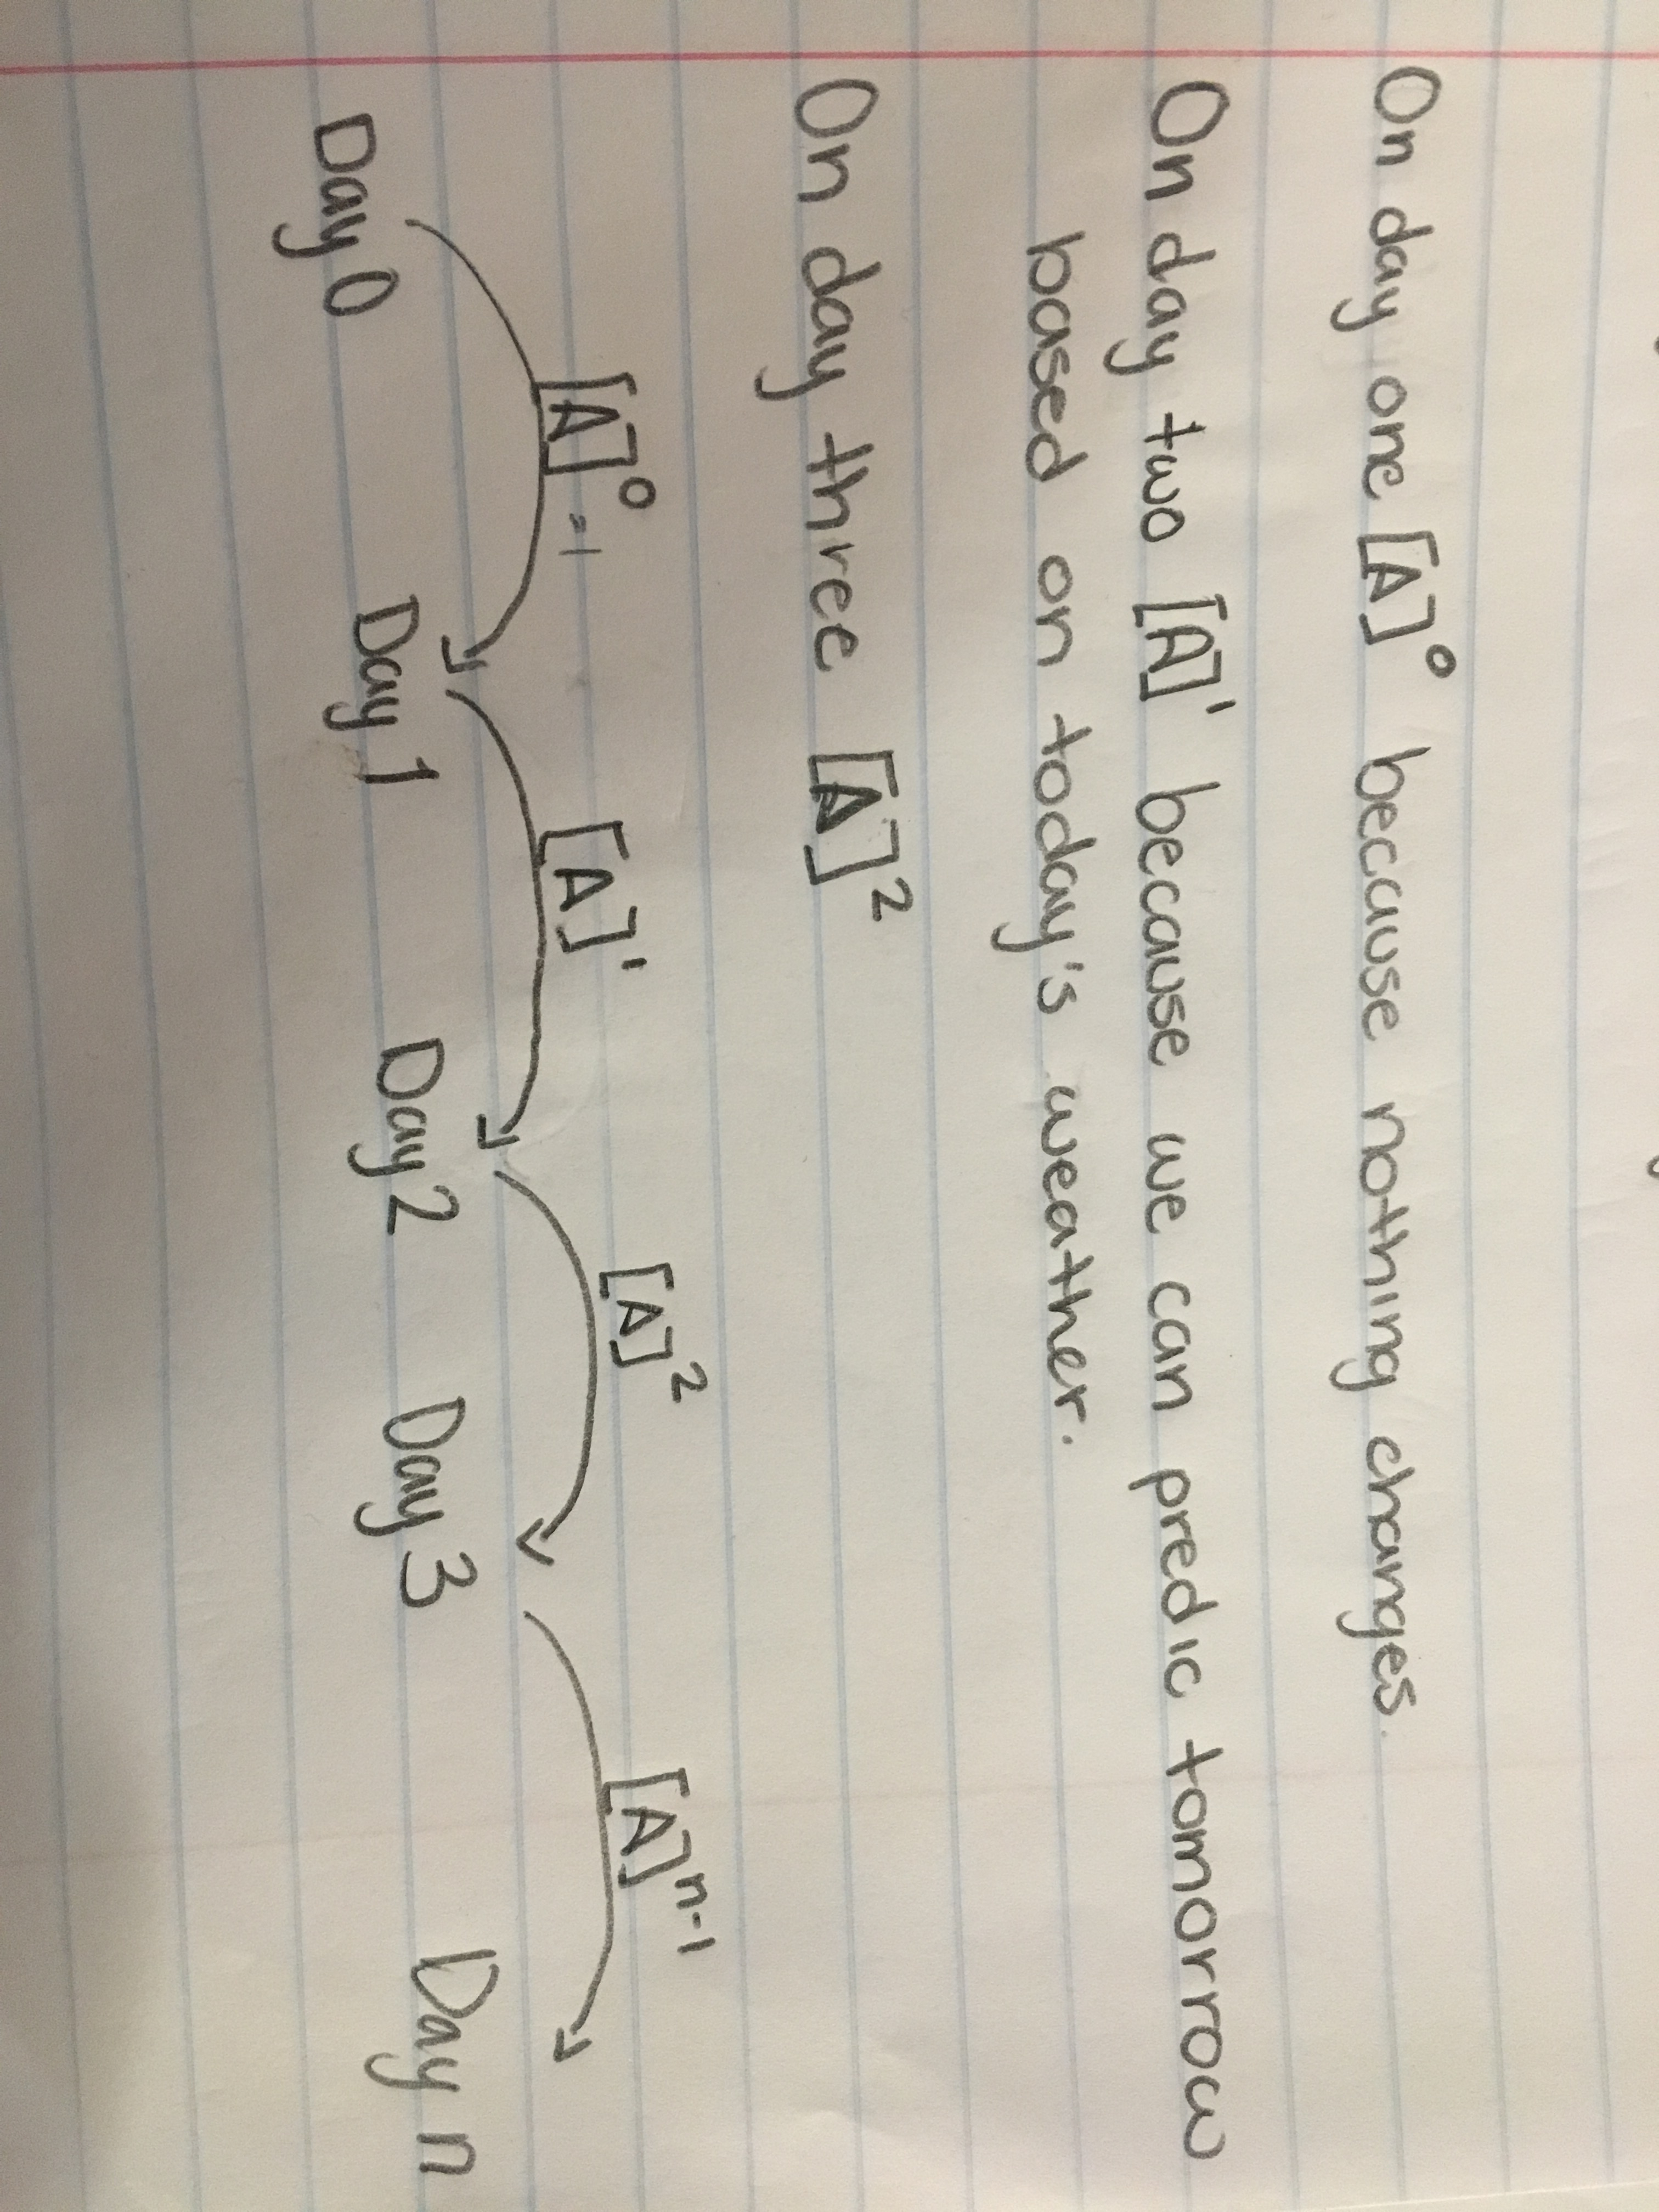 On day one [A]⁰ because nothing changes.
On day two [A]¹ because we can predic tomorrow
based on today's weather.
On day three [A]²
[A]⁰ =1 [A]¹ [A]² [A]ⁿ⁻¹
Day 0 Day 1 Day 2 Day 3 Day n